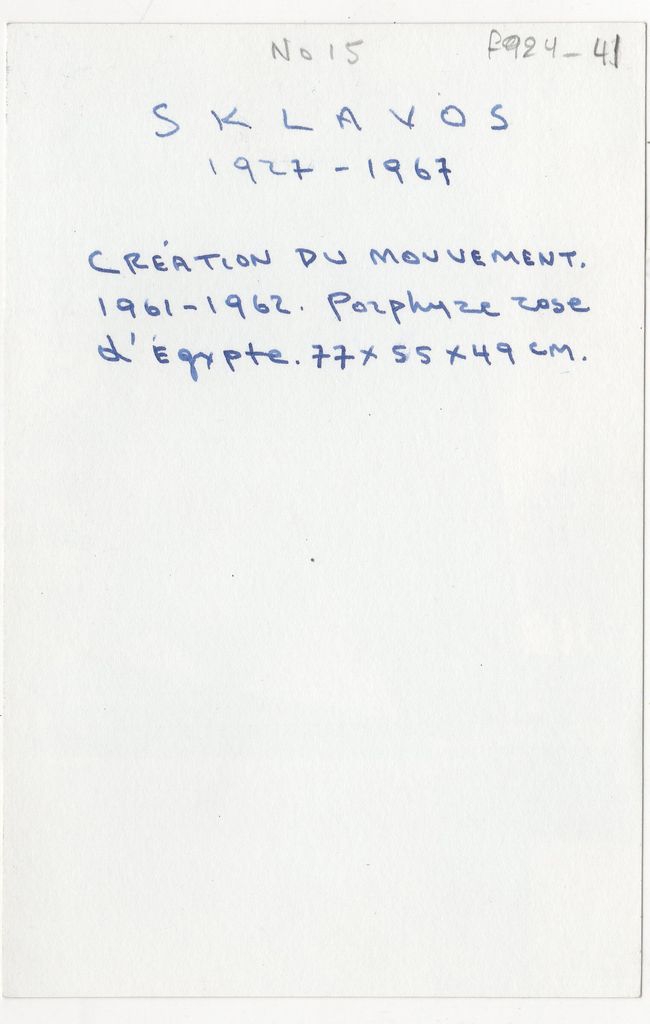 No 15 F924-41
SKLAVOS
1927-1967
CRÉATION DU MOUVEMENT.
1961-1962. Porphyre rose
d'Égypte. 77x55x49 cm.